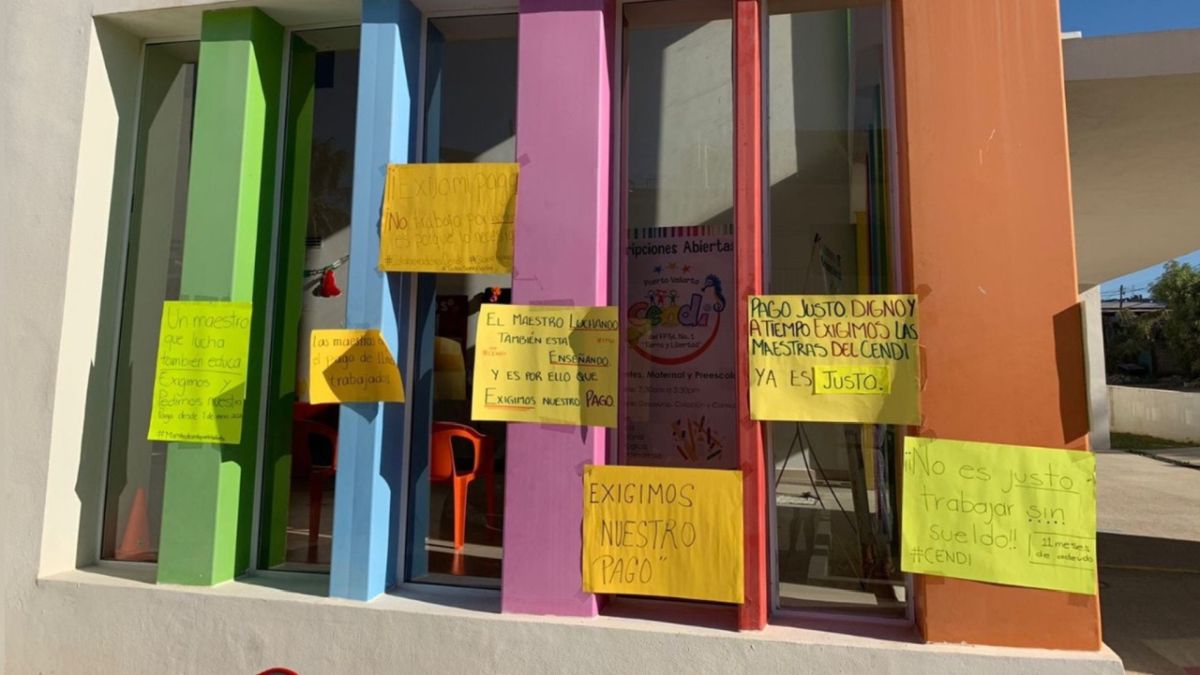 ¡¡Exijo mi pago
¡No trabajo por
¡es porque lo necesito
Un maestro
que lucha
también educa
Exigimos y
Pedimos nuestro
Pago desde 1 de enero
las maestras
el pago de
trabajados
EL MAESTRO LUCHANDO
TAMBIÉN ESTA
#CENDI
ENSEÑANDO.
Y ES POR ELLO QUE
EXIGIMOS NUESTRO PAGO.
ripciones Abiertas
Puerto Vallarta
Cendi
del FPTyL No. 1
"Tierra y Libertad"
Maternal y Preescolar
7:30am a 3:30pm
PAGO JUSTO DIGNO Y
A TIEMPO EXIGIMOS LAS
MAESTRAS DEL CENDI
YA ES JUSTO.
EXIGIMOS
NUESTRO
PAGO"
¡¡No es justo
trabajar sin
sueldo!!
#CENDI
11 meses
de adeudo